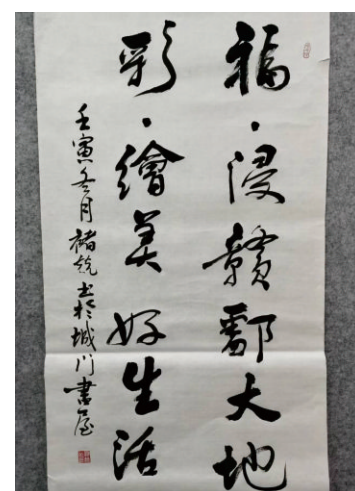 福·浸赣鄱大地
彩·繪美好生活
壬寅冬月褚銳书於城门書屋